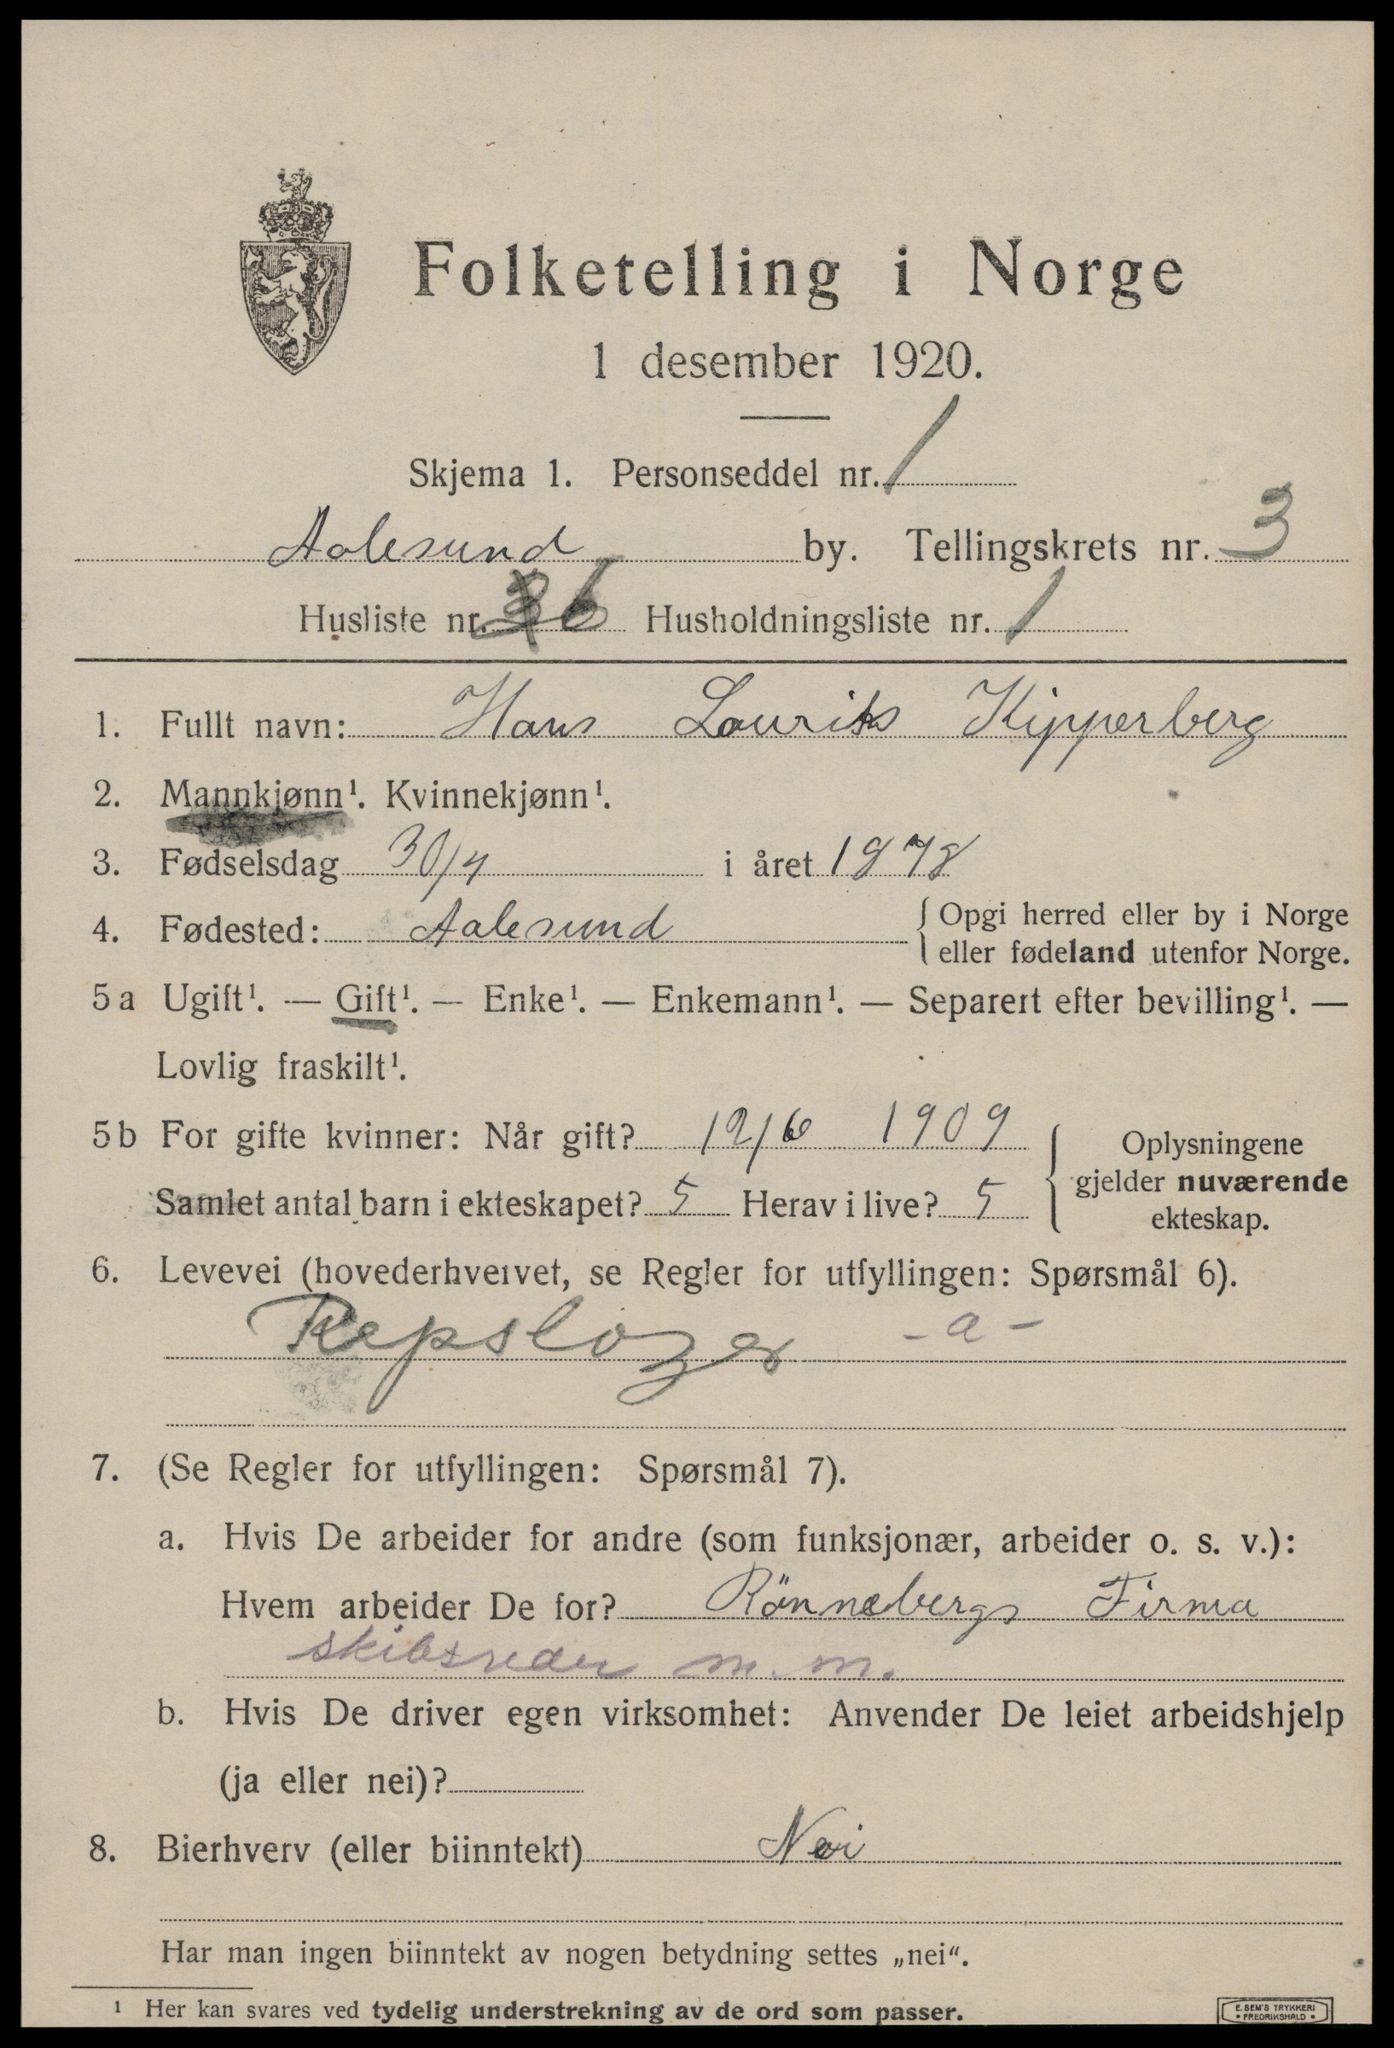 Folketelling i Norge
1 desember 1920.
Skjema 1. Personseddel nr. 1
Aalesund by. Tellingskrets nr. 3
Husliste nr. 6 Husholdningsliste nr. 1
1. Fullt navn: Hans Laurits Kipperberg
2. Mannkjønn¹. Kvinnekjønn¹.
3. Fødselsdag 30/4 i året 1878
4. Fødested: Aalesund { Opgi herred eller by i Norge
eller fødeland utenfor Norge.
5a Ugift¹. — Gift¹. — Enke¹. — Enkemann¹. — Separert efter bevilling¹. —
Lovlig fraskilt¹.
5b For gifte kvinner: Når gift? 12/6 1909
Samlet antal barn i ekteskapet? 5 Herav i live? 5
{ Oplysningene
gjelder nuværende
ekteskap.
6. Levevei (hovederhvervet, se Regler for utfyllingen: Spørsmål 6).
Repslager -a-
7. (Se Regler for utfyllingen: Spørsmål 7).
a. Hvis De arbeider for andre (som funksjonær, arbeider o. s. v.):
Hvem arbeider De for? Rönnebergs Firma
skibsreder m.m.
b. Hvis De driver egen virksomhet: Anvender De leiet arbeidshjelp
(ja eller nei)?
8. Bierhverv (eller biinntekt) Nei
Har man ingen biinntekt av nogen betydning settes „nei“.
¹ Her kan svares ved tydelig understrekning av de ord som passer.
E. SEM'S TRYKKERI
• FREDRIKSHALD •